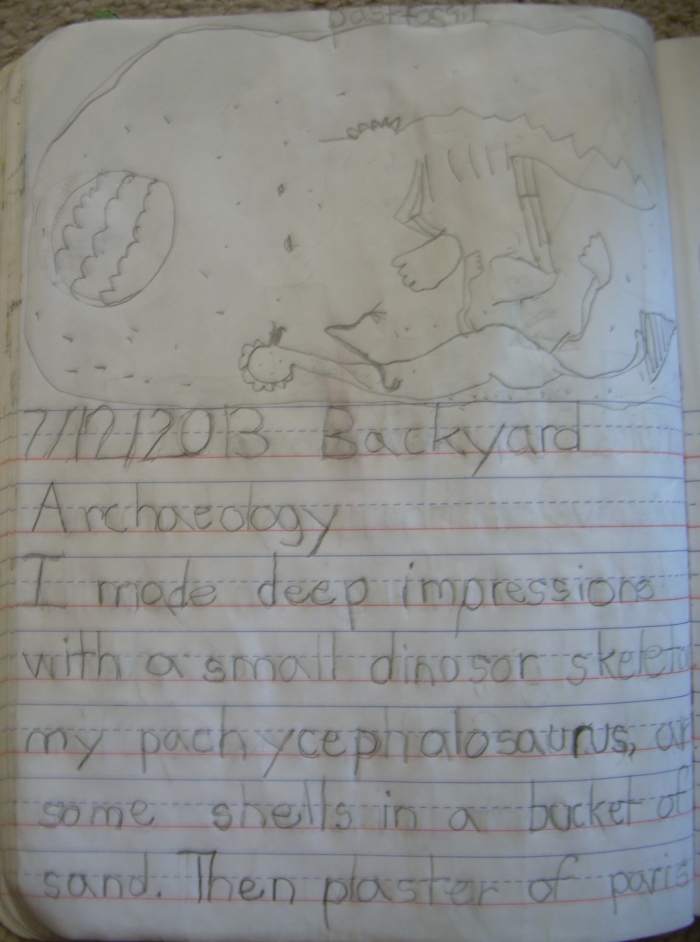 7/12/2013 Backyard
Archaeology
I made deep impressions
with a small dinosor skeleto
my pachycephalosaurus, an
some shells in a bucket of
sand. Then plaster of paris